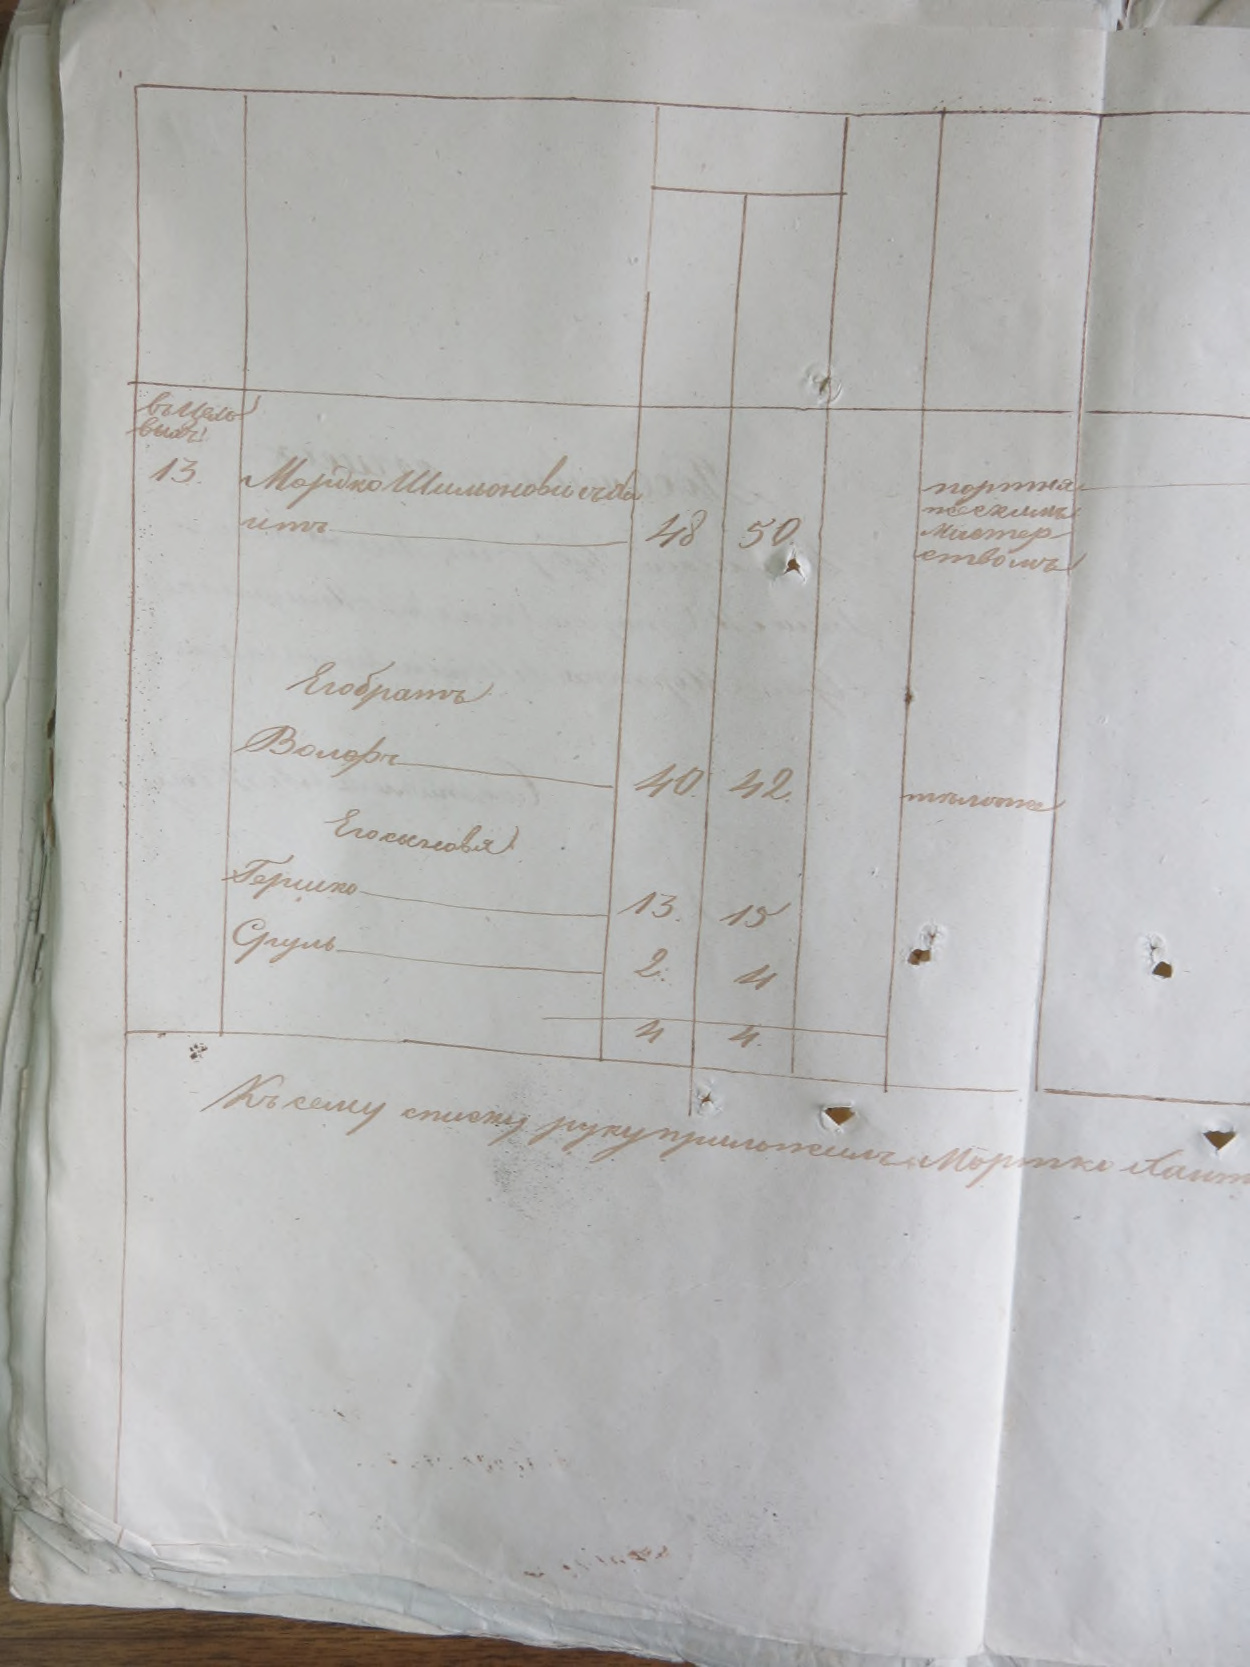 13. Мордко Шильоновичъ Ба
итъ 48 50
портня
ческимъ
мастер
ствомъ
Его братъ
Волоръ 40. 42.
тоже
Его сыновя
Гершко 13. 15
Сруль 2. 4
4 4.
Къ сему списку руку приложилъ Мортко